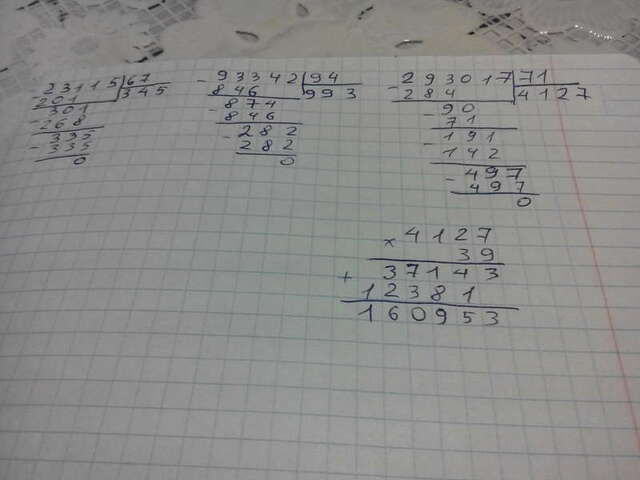 23115 67
- 201 345
301
- 268
335
- 335
0
- 93342 94
846 993
- 874
846
- 282
282
0
- 293017 71
284 4127
- 90
71
- 191
142
- 497
497
0
× 4127
39
+ 37143
12381
160953